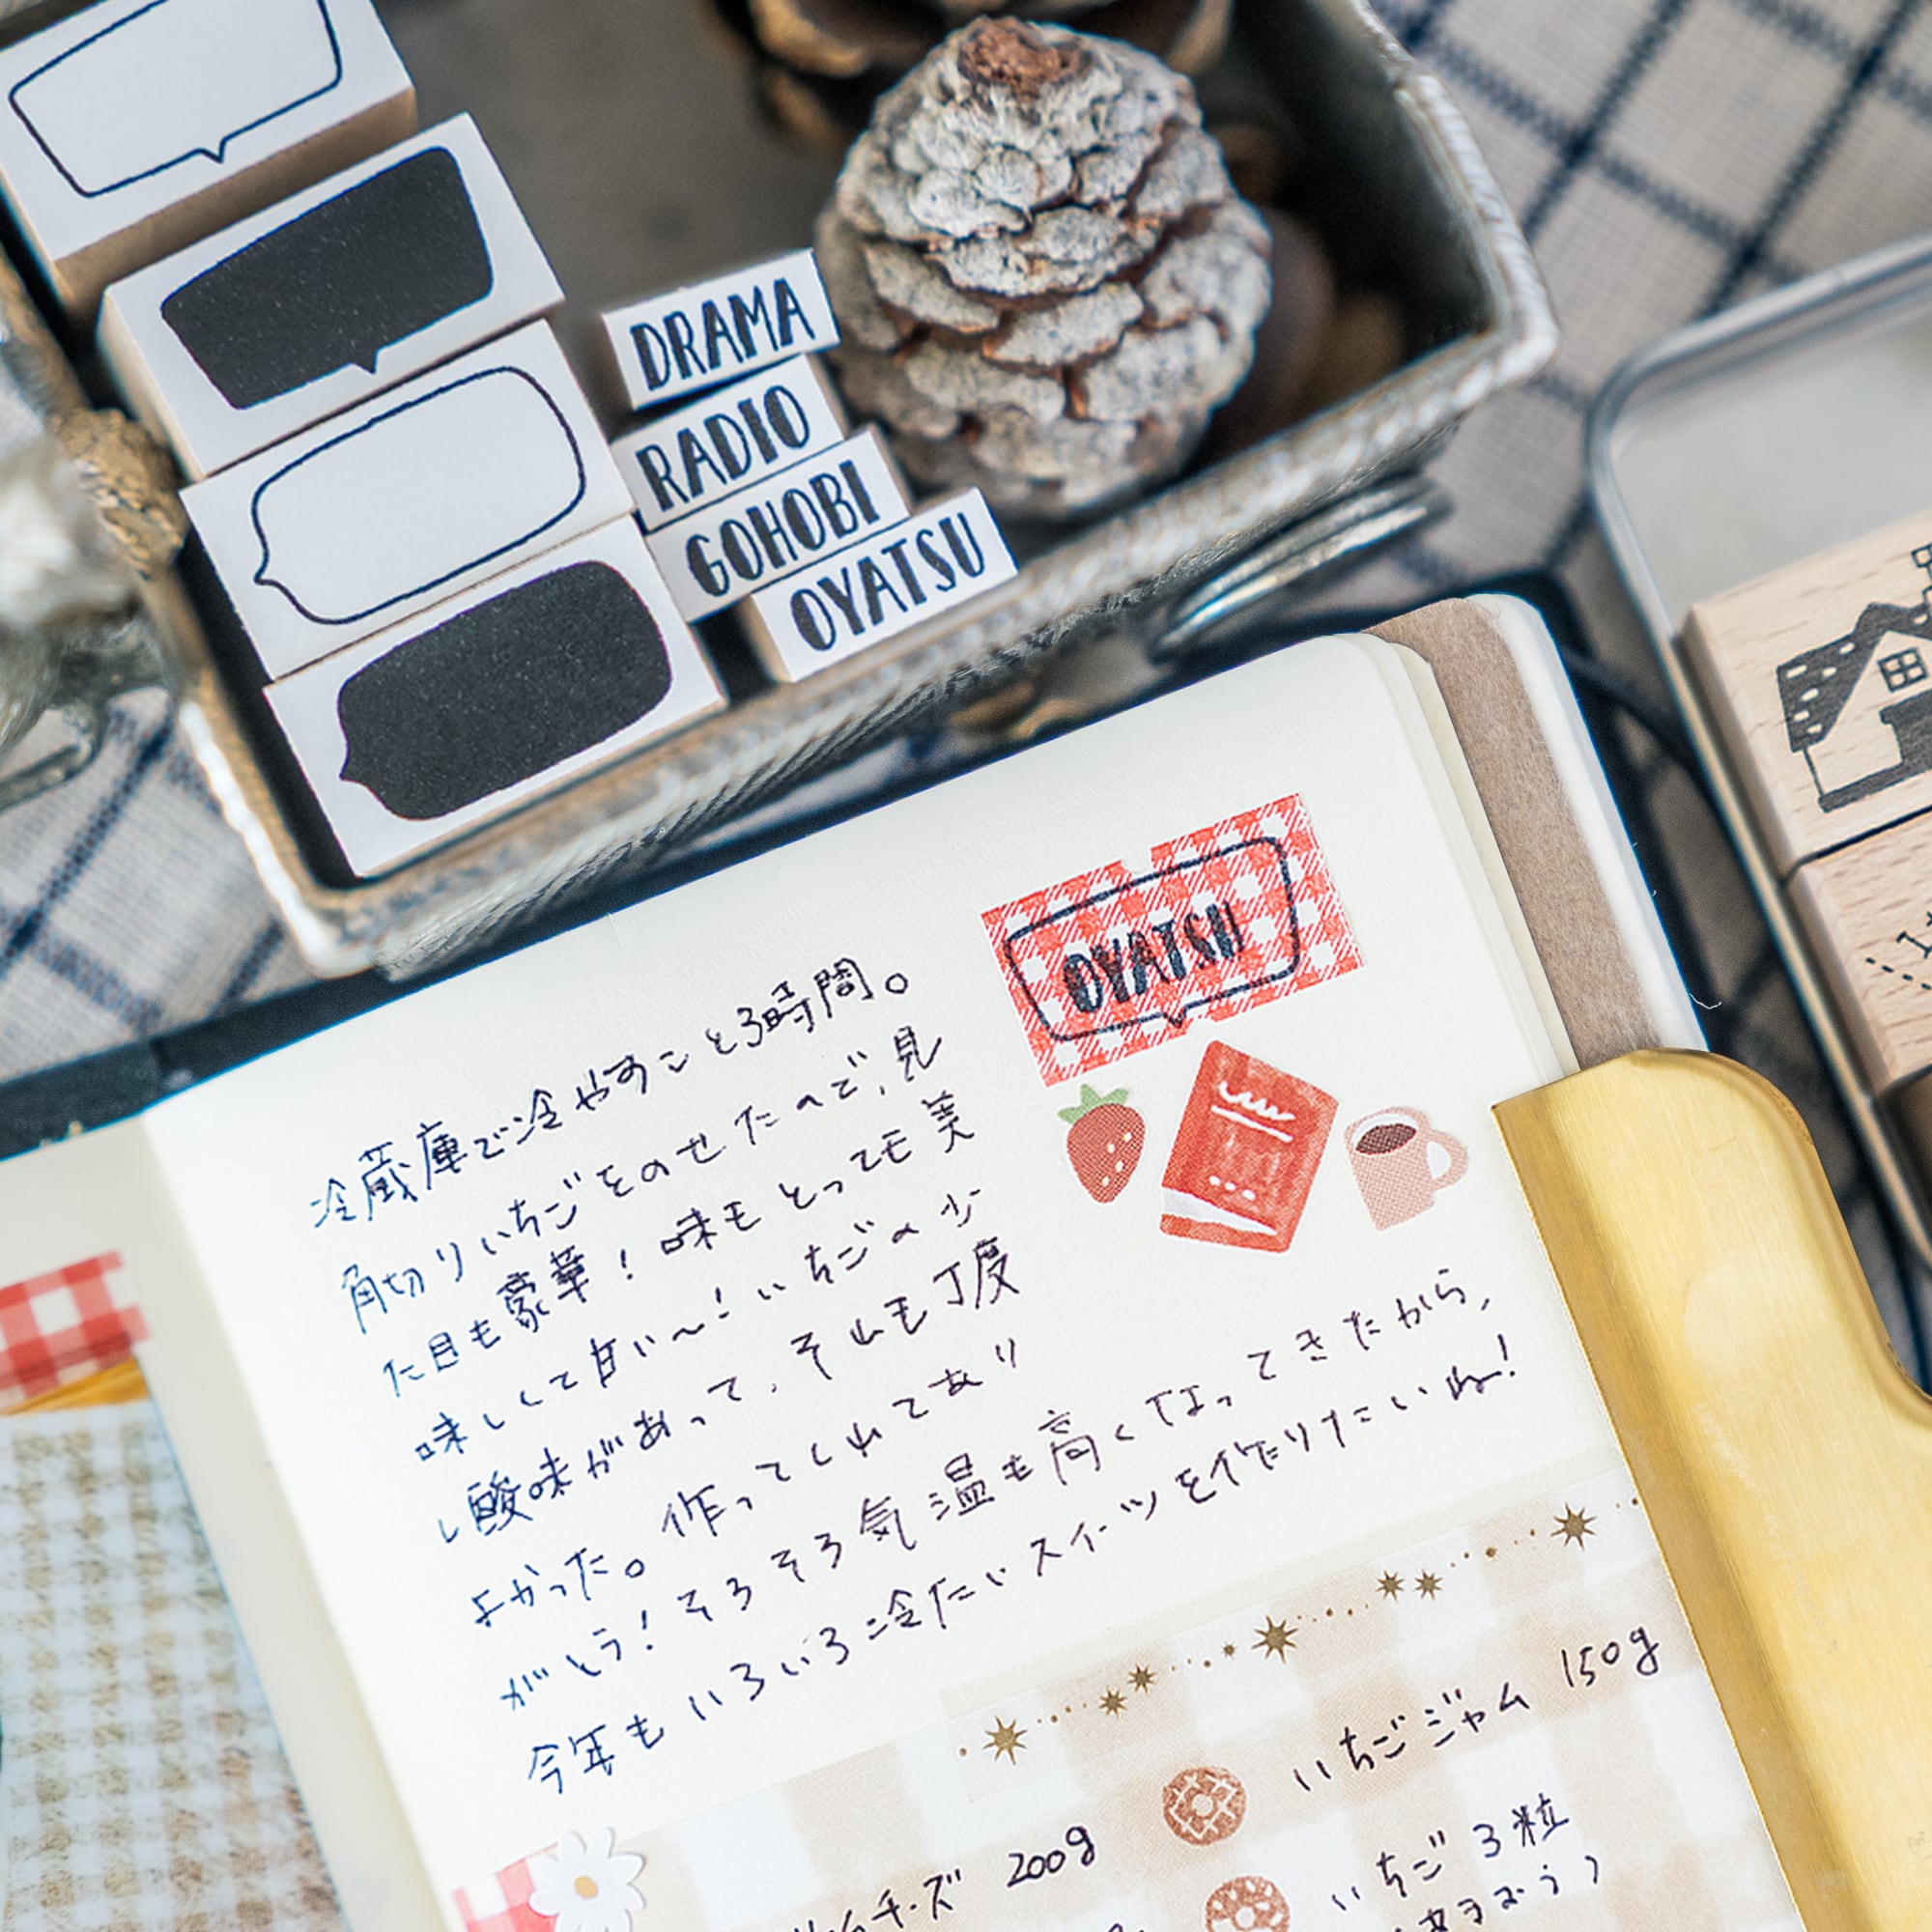 DRAMA
RADIO
GOHOBI
OYATSU
OYATSU
冷蔵庫で冷やすこと3時間。
角切りいちごをのせたので、見
た目も豪華!味もとっても美
味しくて甘い〜!いちごの少
し酸味があって、それも丁度
よかった。作ってくれてあり
がとう!そろそろ気温も高くなってきたから、
今年もいろいろ冷たいスイーツを作りたいね!
いちごジャム 150g
チーズ 200g
いちご 3粒